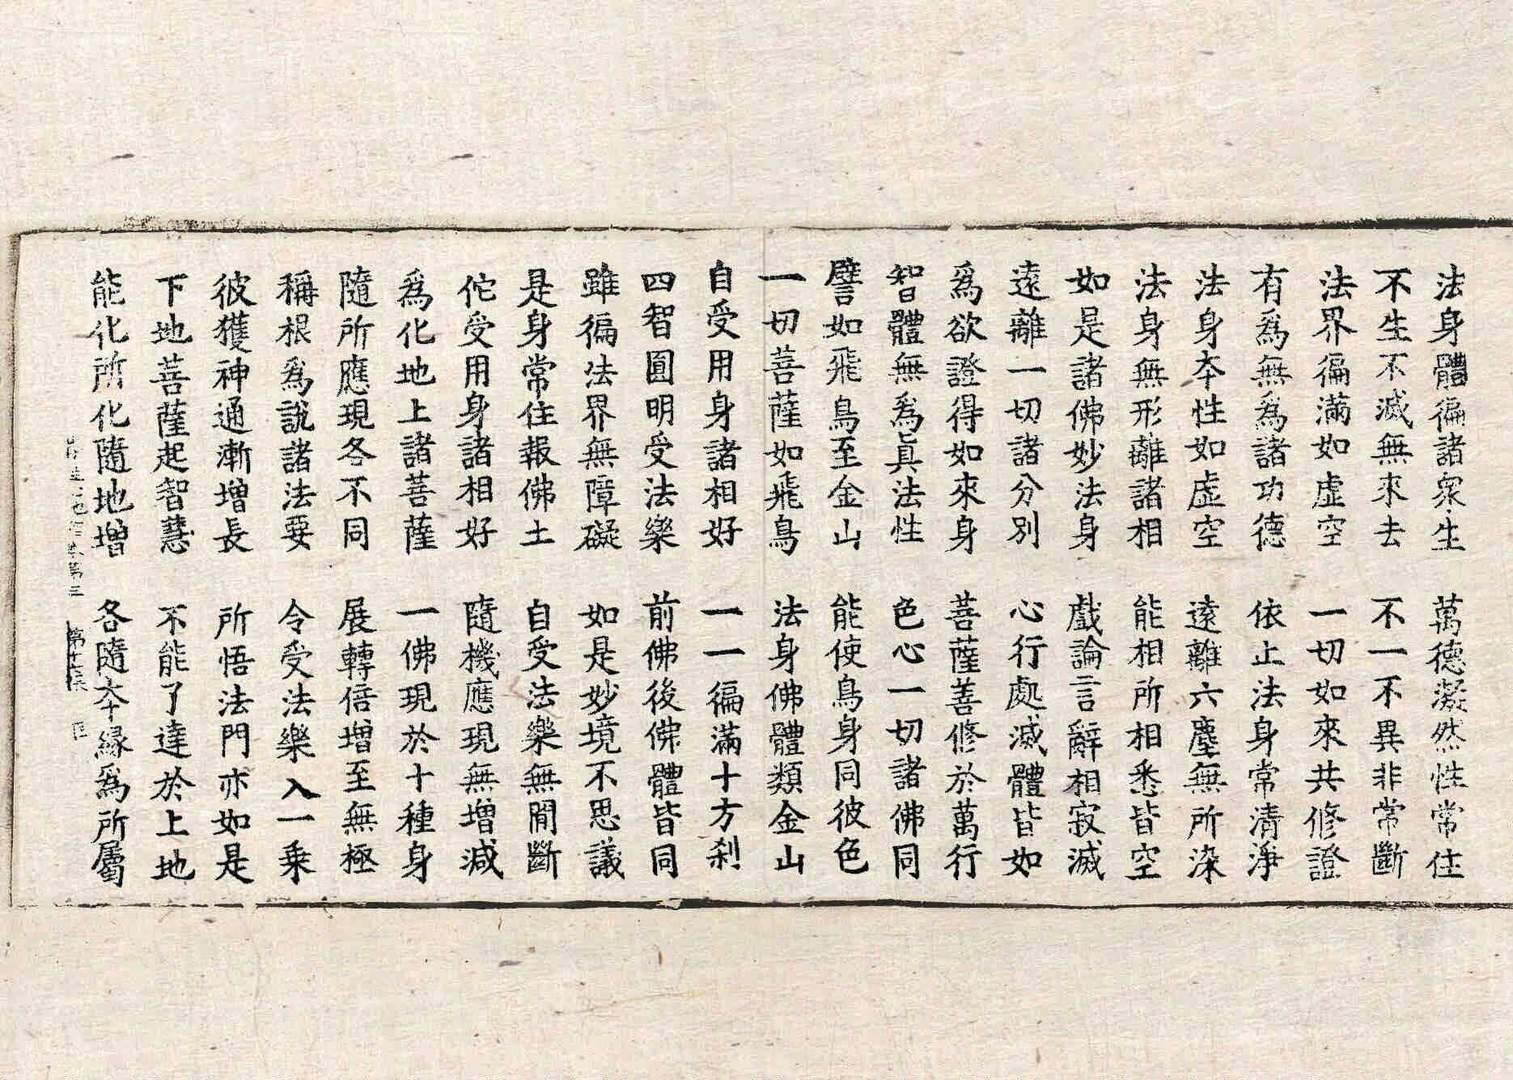 法身體徧諸衆生　萬德凝然性常住
不生不滅無來去　不一不異非常斷
法界徧滿如虛空　一切如來共修證
有爲無爲諸功德　依止法身常清淨
法身夲性如虛空　遠離六塵無所染
法身無形離諸相　能相所相悉皆空
如是諸佛妙法身　戲論言辭相寂滅
遠離一切諸分別　心行處滅體皆如
爲欲證得如來身　菩薩善修於萬行
智體無爲眞法性　色心一切諸佛同
譬如飛鳥至金山　能使鳥身同彼色
一切菩薩如飛鳥　法身佛體類金山
自受用身諸相好　一一徧滿十方刹
四智圓明受法樂　前佛後佛體皆同
雖徧法界無障礙　如是妙境不思議
是身常住報佛土　自受法樂無間斷
佗受用身諸相好　隨機應現無增減
爲化地上諸菩薩　一佛現於十種身
隨所應現各不同　展轉倍增至無極
稱根爲說諸法要　令受法樂入一乘
彼獲神通漸增長　所悟法門亦如是
下地菩薩起智慧　不能了達於上地
能化所化隨地增　各隨夲緣爲所屬
地 第三 第十六